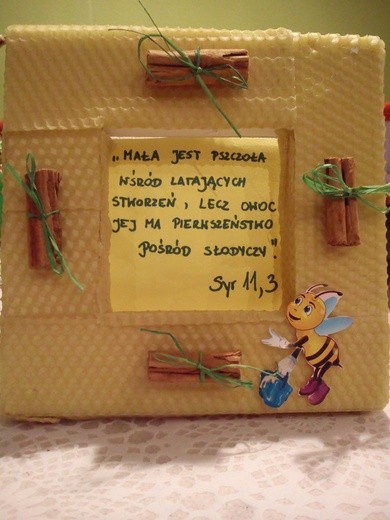 „MAŁA JEST PSZCZOŁA
WŚRÓD LATAJĄCYCH
STWORZEŃ, LECZ OWOC
JEJ MA PIERWSZEŃSTWO
POŚRÓD SŁODYCZY"
Syr 11,3